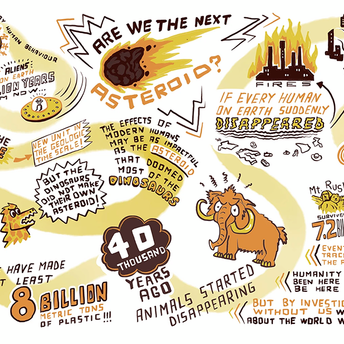 BY HUMAN BEHAVIOUR
ALIENS
ON EARTH
LLION YEARS
M NOW...
ARE WE THE NEXT
ASTEROID?
FIRES
IF EVERY HUMAN
ON EARTH SUDDENLY
DISAPPEARED
NEW UNIT OF
THE GEOLOGIC
TIME SCALE!
THE EFFECTS OF
MODERN HUMANS
MAY BE AS IMPACTFUL
AS THE ASTEROID
THAT DOOMED
MOST OF THE
DINOSAURS
BUT THE
DINOSAURS
DID NOT MAKE
THEIR OWN
ASTEROID!
HAVE MADE
T LEAST
8 BILLION
METRIC TONS
OF PLASTIC!!!
40
THOUSAND
YEARS
AGO
ANIMALS STARTED
DISAPPEARING
Mt RUS
SURVIVE
7.2
EVEN
TRACE
THE P
HUMANITY
BEEN HERE
BE HERE
BUT BY INVESTIG
WITHOUT US W
ABOUT THE WORLD W